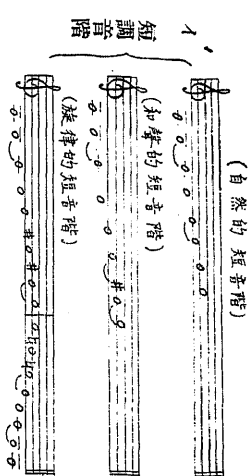 イ、
短調音階
(自然的短音階)
(和聲的短音階)
(旋律的短音階)